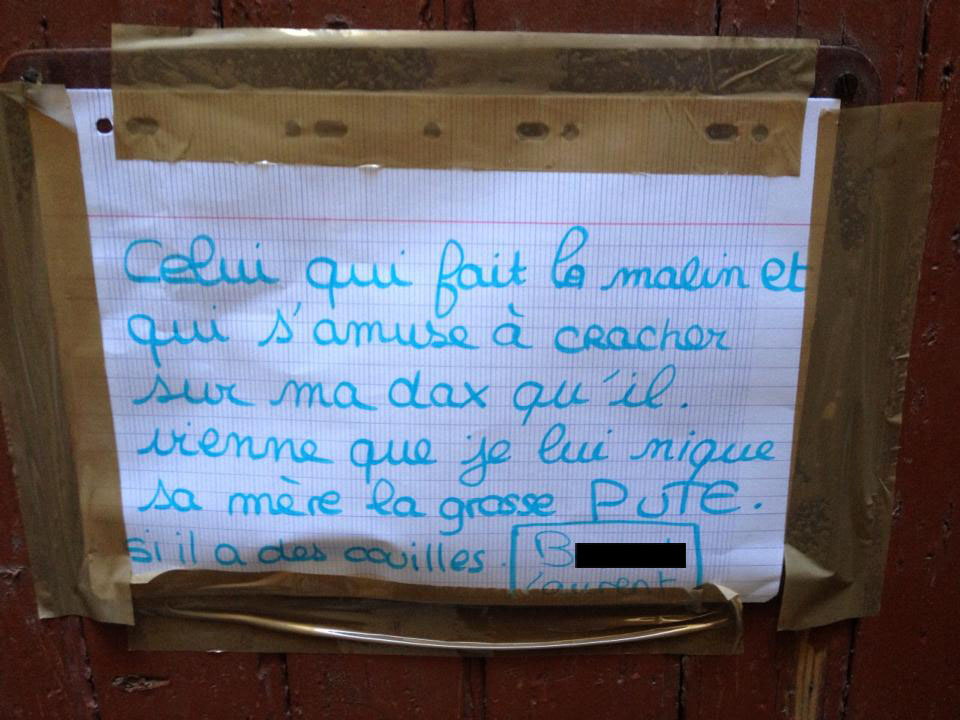 Celui qui fait le malin et
qui s'amuse à cracher
sur ma dax qu'il.
vienne que je lui nique
sa mère la grosse PUTE.
si il a des couilles.
Laurent